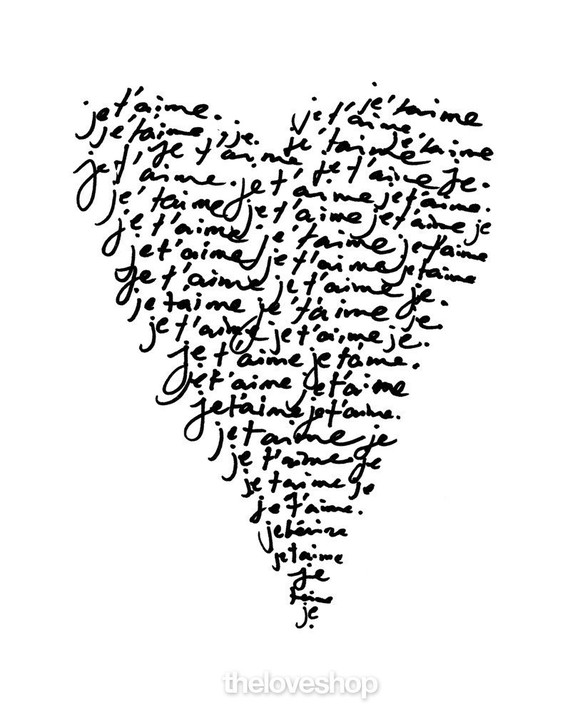 je t'aime. je t'aime
je t'aime, je. je t'aime
je t'aime je t'aime je t'aime
je t'aime. je t'aime je.
je t'aime je t'aime je t'aime.
je t'aime je t'aime je t'aime je
je t'aime je t'aime je t'aime
je t'aime je t'aime je t'aime
je t'aime je t'aime je.
je t'aime je t'aime je.
je t'aime je t'aime je.
je t'aime je t'aime.
je t'aime je t'aime
je t'aime je t'aime.
je t'aime je
je t'aime je
je t'aime je
je t'aime.
je
je t'aime
je
t'aime
je.
theloveshop